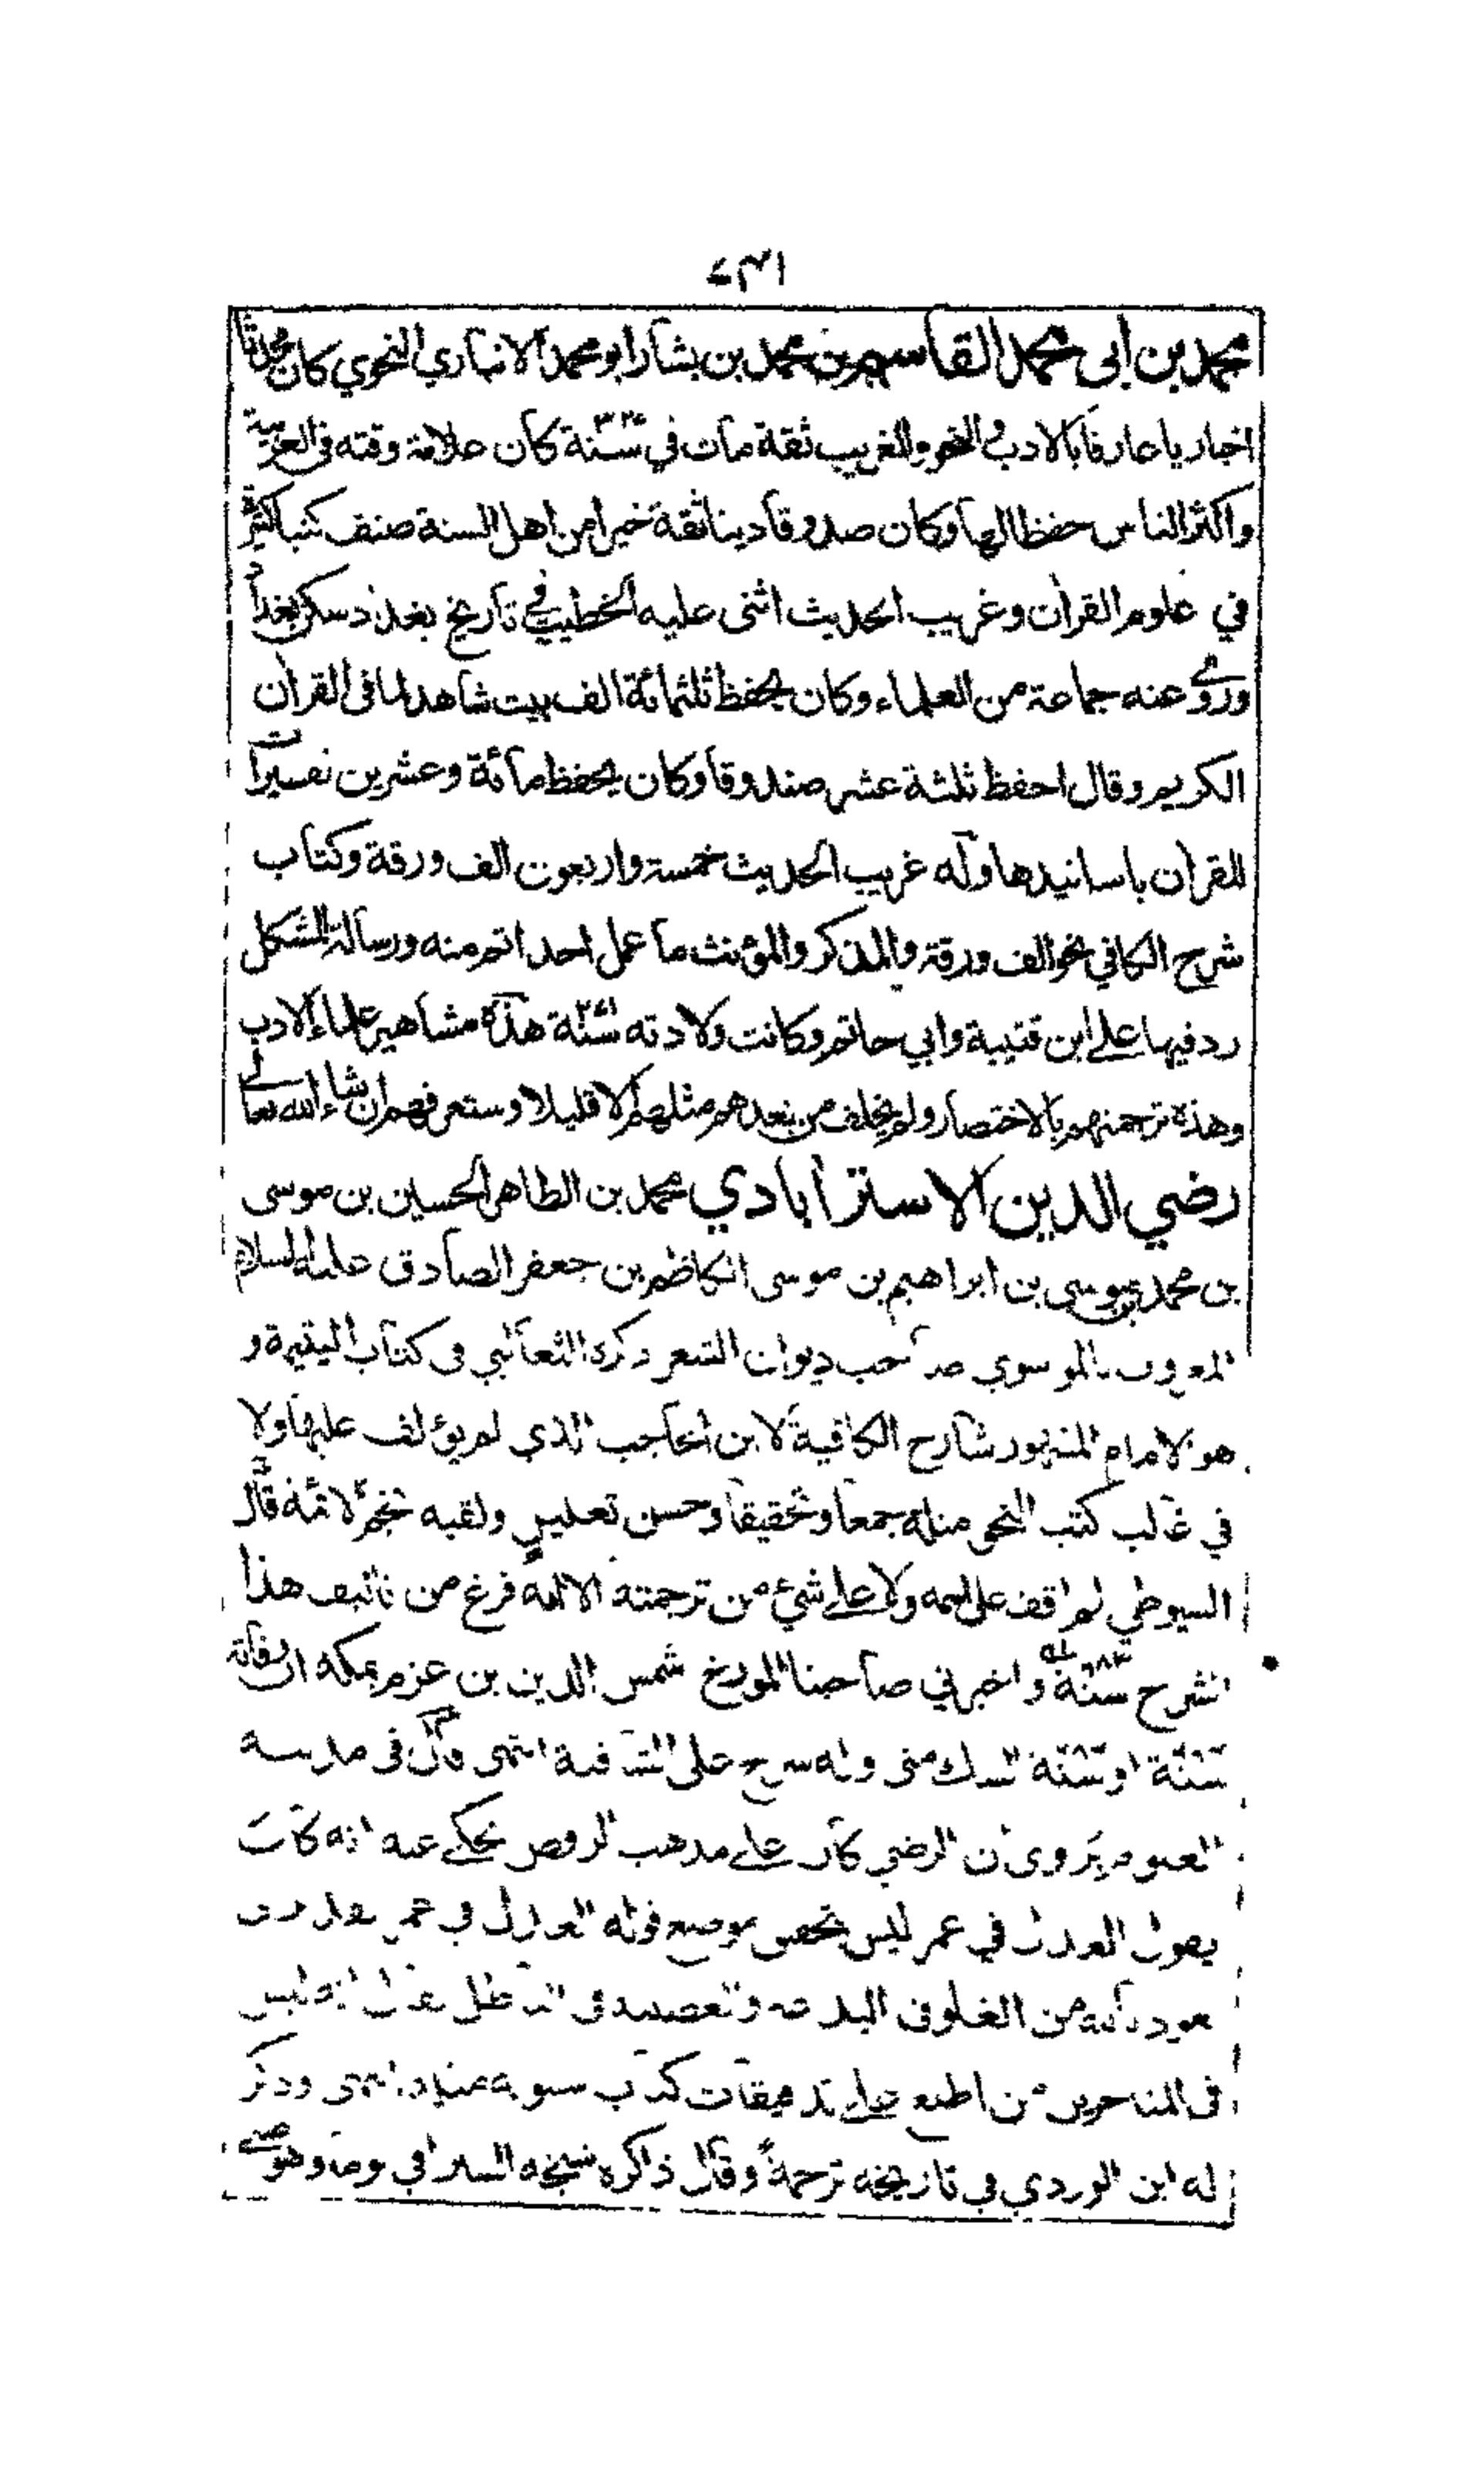 ٧٣١
محمد بن ابى محمد القاسم بن محمد بن بشار ابو محمد الانباري النحوي كان محدثا
اخباريا عارفا بالادب والنحو والغريب ثقة مات في سنة كان علامة وقته فى العربية
واكثر الناس حفظا لها وكان صدوقا دينا ثقة خيرا من اهل السنة صنف كتبا كثيرة
في علوم القرأن وغريب الحديث اثنى عليه الخطيب في تاريخ بغداد سكن بغداد
وروى عنه جماعة من العلماء وكان يحفظ ثلثمائة الف بيت شاهد لما فى القرأن
الكريم وقال احفظ ثلثة عشر صندوقا وكان يحفظ مائة وعشرين تفسيرا
للقرأن باسانيدها وله غريب الحديث خمسة واربعون الف ورقة وكتاب
شرح الكافي نحو الف ورقة والمذكر والمؤنث ما عمل احد اتم منه ورسالة المشكل
رد فيها على ابن قتيبة وابي حاتم وكانت ولادته سنة هذه مشاهير علماء الادب
وهذه ترجمتهم بالاختصار ولم يخلف من بعدهم مثلهم الا قليلا وستعرفهم ان شاء الله تعالى
رضي الدين الاسترابادي محمد بن الطاهر الحسين بن موسى
بن محمد بن موسى بن ابراهيم بن موسى الكاظم بن جعفر الصادق عليه السلام
المعروف بالموسوي صاحب ديوان الشعر ذكره الثعالبي فى كتاب اليتيمة و
هو الامام المشهور شارح الكافية لابن الحاجب الذي لم يؤلف عليها ولا
في غالب كتب النحو مثله جمعا وتحقيقا وحسن تعليل ولقبه نجم الائمة قال
السيوطي لم اقف على اسمه ولا على شيء من ترجمته الا انه فرغ من تأليف هذا
الشرح سنة ٦٨٣ واخبرني صاحبنا المورخ شمس الدين بن عزم بمكة ان وفاته
سنة او سنة الشك منى وله شرح على الشافية انتهى قال فى مدينة
العلوم يروى ان الرضي كان على مذهب الرفض يحكى عنه انه كان
يقول العدل في عمر ليس بتحقيقي موضع قوله العدل في عمر تقديري
نعوذ بالله من الغلو فى البدعة والعصبية فى الباطل
فى المتاخرين من اطلع على تدقيقات كتاب سيبويه مثله انتهى وذكر
له ابن الوردي في تاريخه ترجمة وقال ذاكره شيخه السيرافي يوما وهو صبي